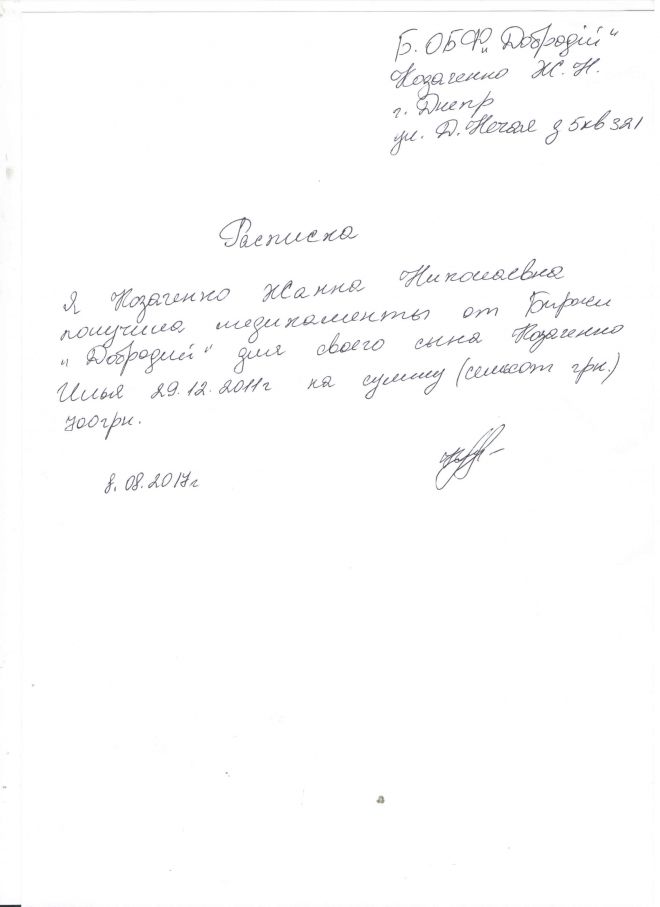 Б. ОБФ „Добродій"
Козаченко Ж. Н.
г. Днепр
ул. Д. Нечая д 5 кв 321
Расписка
Я Козаченко Жанна Николаевна
получила медикаменты от Биржи
„Добродий" для своего сына Козаченко
Илья 29.12.2011г на сумму (семьсот грн.)
700грн.
8.08.2017г